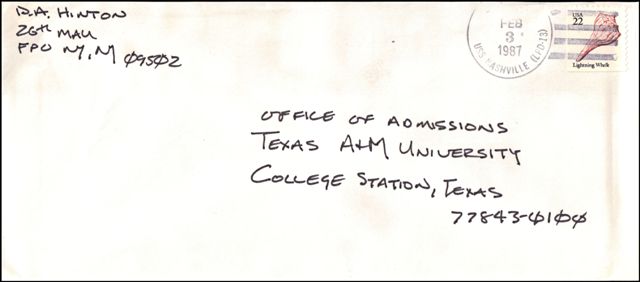 D.A. HINTON
26TH MAU
FPO NY, NY 09502
FEB
3
1987
USS NASHVILLE (LPD-13)
USA
22
Lightning Whelk
OFFICE OF ADMISSIONS
TEXAS A+M UNIVERSITY
COLLEGE STATION, TEXAS
77843-0100